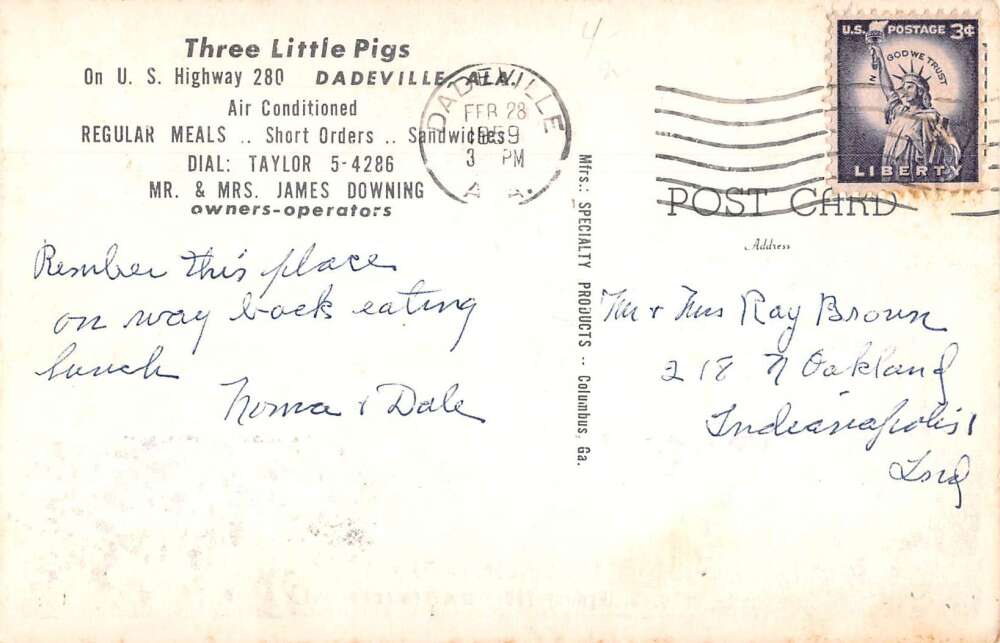 Three Little Pigs
On U. S. Highway 280 DADEVILLE, ALA.
Air Conditioned
REGULAR MEALS .. Short Orders .. Sandwiches
DIAL: TAYLOR 5-4286
MR. & MRS. JAMES DOWNING
owners-operators
DADEVILLE
FEB 28
1959
3 PM
ALA.
U.S. POSTAGE 3¢
IN GOD WE TRUST
LIBERTY
POST CARD
Address
Mfrs.: SPECIALTY PRODUCTS -- Columbus, Ga.
Rember this place
on way back eating
lunch
Norma & Dale
Mr & Mrs Ray Brown
218 N Oakland
Indianapolis 1
Ind